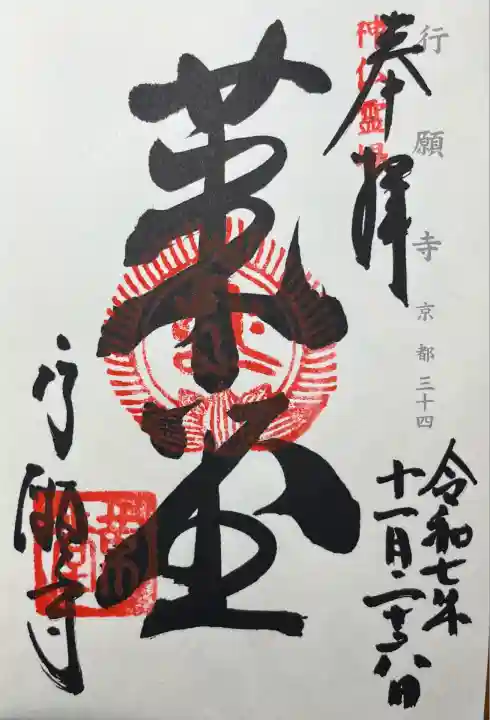 行願寺 京都 三十四
奉拝
神仏霊場
令和七年
十一月二十八日
革堂
行願寺